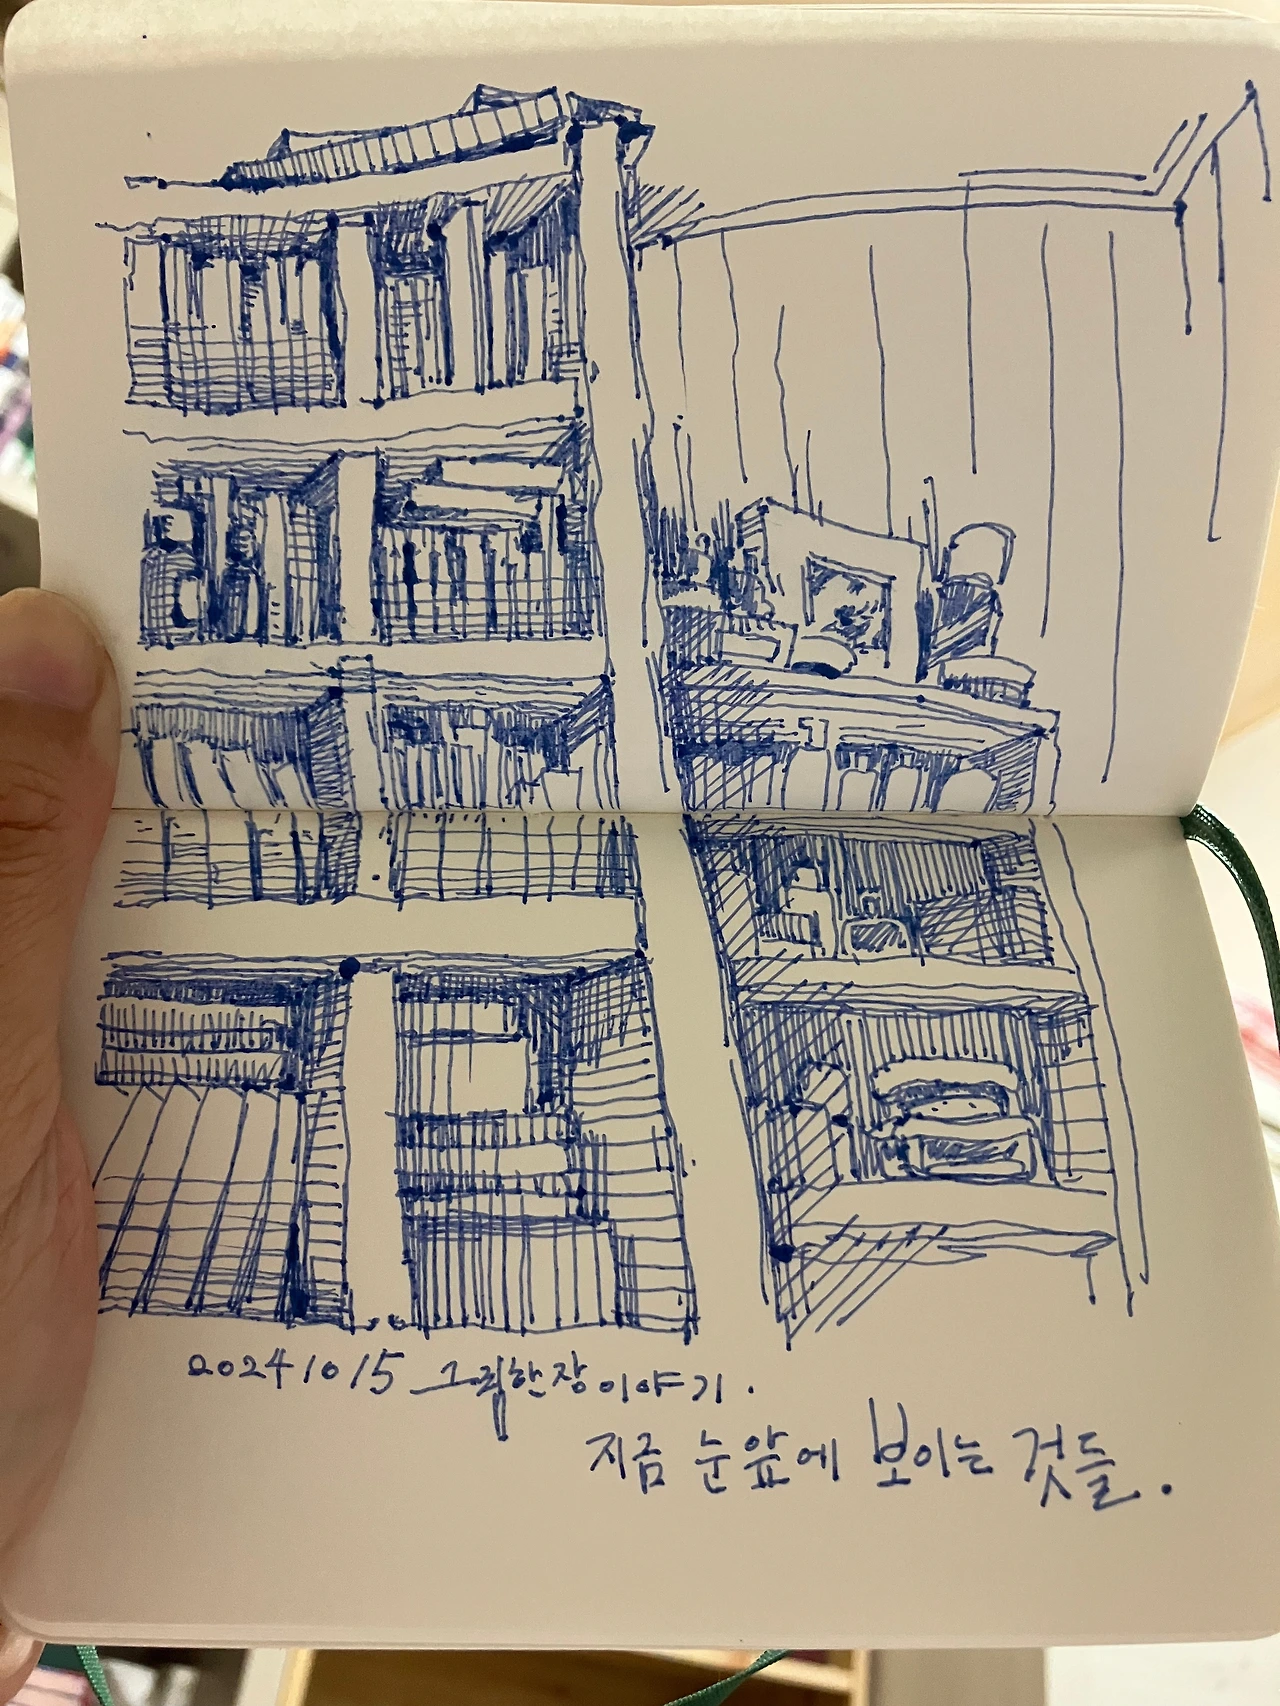 20241015 그림한장이야기.
지금 눈앞에 보이는 것들.